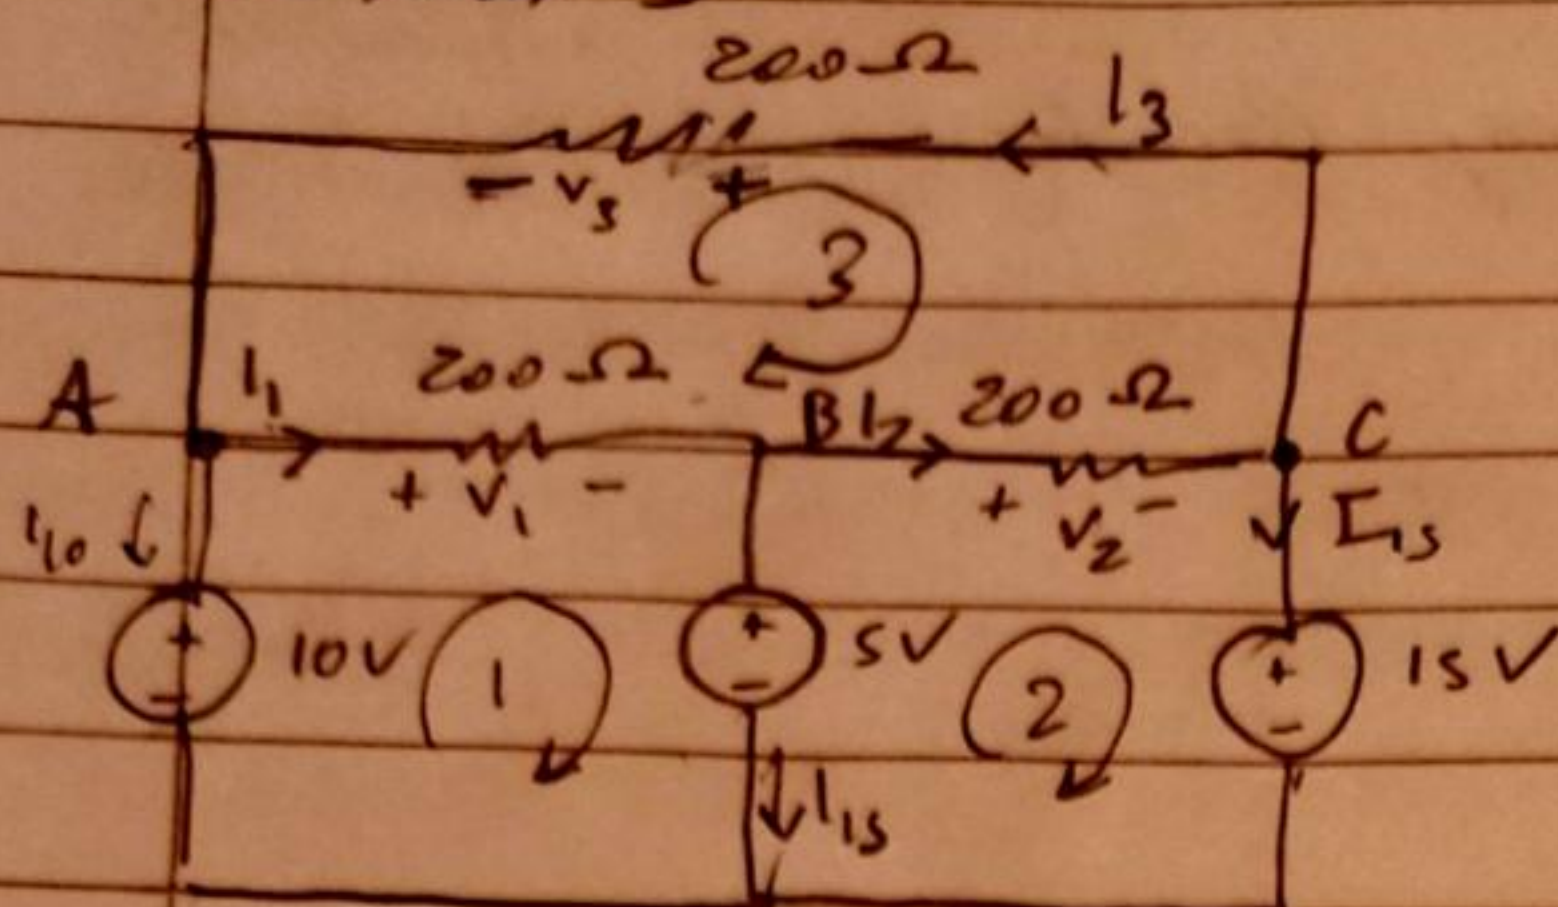 200 Ω
I3
- v3 +
3
A I1 200 Ω B I2 200 Ω C
+ v1 - + v2 -
I10 I15
+ 10V 1 + 5V 2 + 15V
- - -
I15